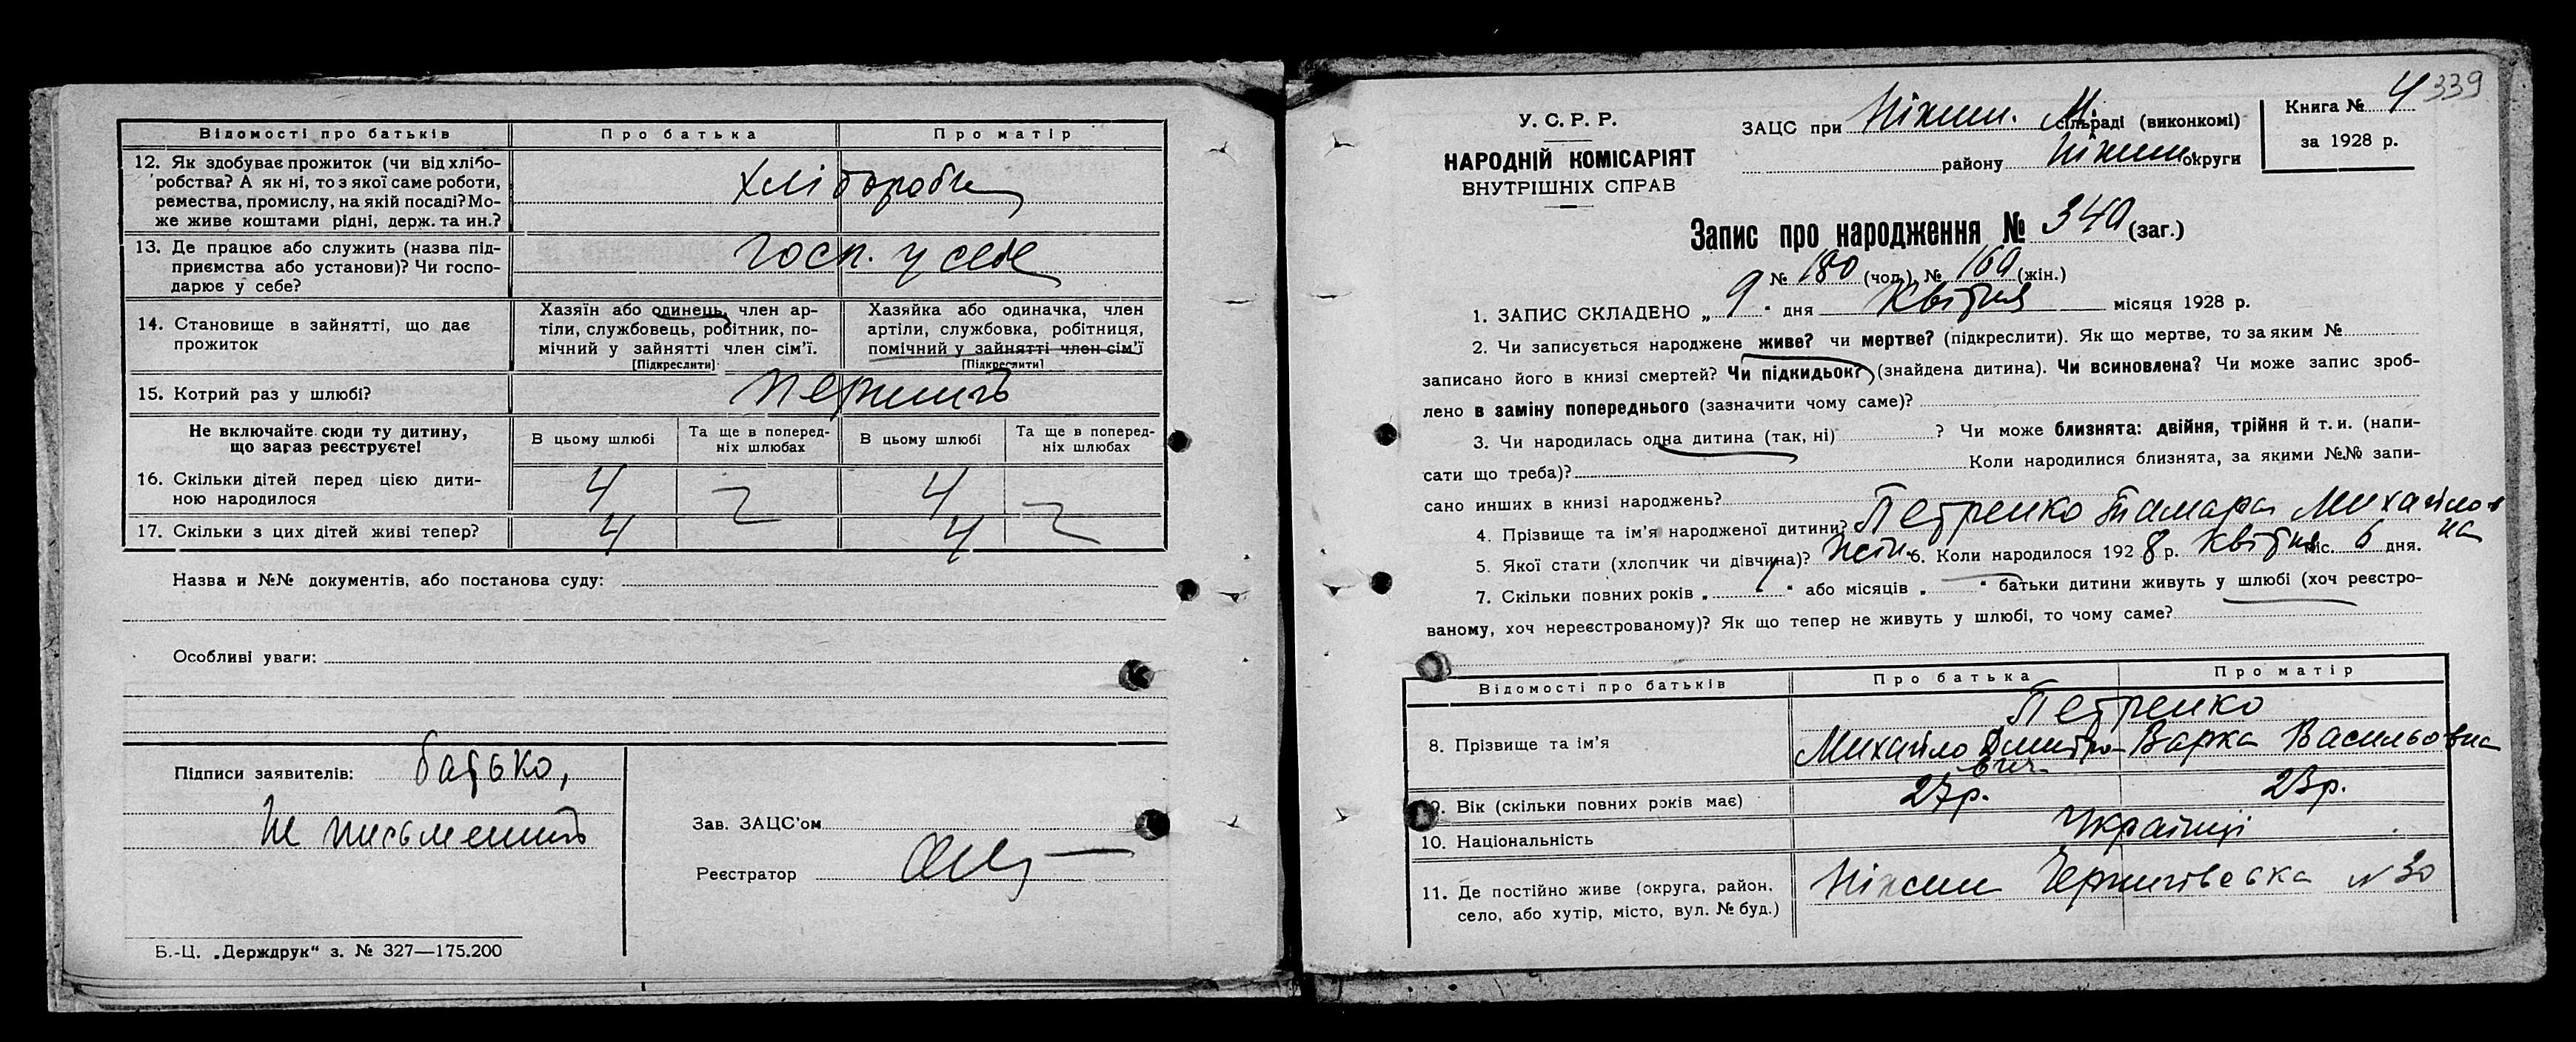 Відомості про батьків Про батька Про матір
12. Як здобуває прожиток (чи від хлібо-
робства? А як ні, то з якої саме роботи,
ремества, промислу, на якій посаді? Мо-
же живе коштами рідні, держ. та ин.?
хлібороби
13. Де працює або служить (назва під-
приємства або установи)? Чи госпо-
дарює у себе?
госп. у себе
14. Становище в зайнятті, що дає
прожиток
Хазяїн або одинець, член ар-
тіли, службовець, робітник, по-
мічний у зайнятті член сім'ї.
[Підкреслити]
Хазяйка або одиначка, член
артіли, службовка, робітниця,
помічний у зайнятті член сім'ї
[Підкреслити]
15. Котрий раз у шлюбі?
Не включайте сюди ту дитину,
що зараз реєструєте!
В цьому шлюбі
Та ще в поперед-
ніх шлюбах
В цьому шлюбі
Та ще в поперед-
ніх шлюбах
16. Скільки дітей перед цією дити-
ною народилося
4 4
17. Скільки з цих дітей живі тепер? 4 4
Назва и №№ документів, або постанова суду:
Особливі уваги:
Підписи заявителів: батько,
не письменний
Зав. ЗАЦС'ом
Реєстратор
Б.-Ц. „Держдрук“ з. № 327—175.200
339
У. С. Р. Р.
НАРОДНІЙ КОМІСАРІЯТ
ВНУТРІШНІХ СПРАВ
ЗАЦС при Ніжин. М. сільраді (виконкомі)
району Ніжин. округи
Книга № 4
за 1928 р.
Запис про народження № 340 (заг.)
№ 180 (чол.), № 160 (жін.)
1. ЗАПИС СКЛАДЕНО „ 9 “ дня Квітня місяця 1928 р.
2. Чи записується народжене живе? чи мертве? (підкреслити). Як що мертве, то за яким №
записано його в книзі смертей? Чи підкидьок? (знайдена дитина). Чи всиновлена? Чи може запис зроб-
лено в заміну попереднього (зазначити чому саме)?
3. Чи народилась одна дитина (так, ні) ? Чи може близнята: двійня, трійня й т. и. (напи-
сати що треба)? Коли народилися близнята, за якими №№ запи-
сано инших в книзі народжень?
4. Прізвище та ім'я народженої дитини? Петренко Тамара Михайлов
на
5. Якої стати (хлопчик чи дівчина)? Жін. 6. Коли народилося 1928 р. Квітня міс. 6 дня.
7. Скільки повних років „ “ або місяців „ “ батьки дитини живуть у шлюбі (хоч реєстро-
ваному, хоч нереєстрованому)? Як що тепер не живуть у шлюбі, то чому саме?
Відомості про батьків Про батька Про матір
Петренко
8. Прізвище та ім'я Михайло Дмитро- Варка Васильовна
вич
9. Вік (скільки повних років має) 27 р. 23 р.
10. Національність Українці
11. Де постійно живе (округа, район,
село, або хутір, місто, вул. № буд.)
Ніжин Чернигівська № 30